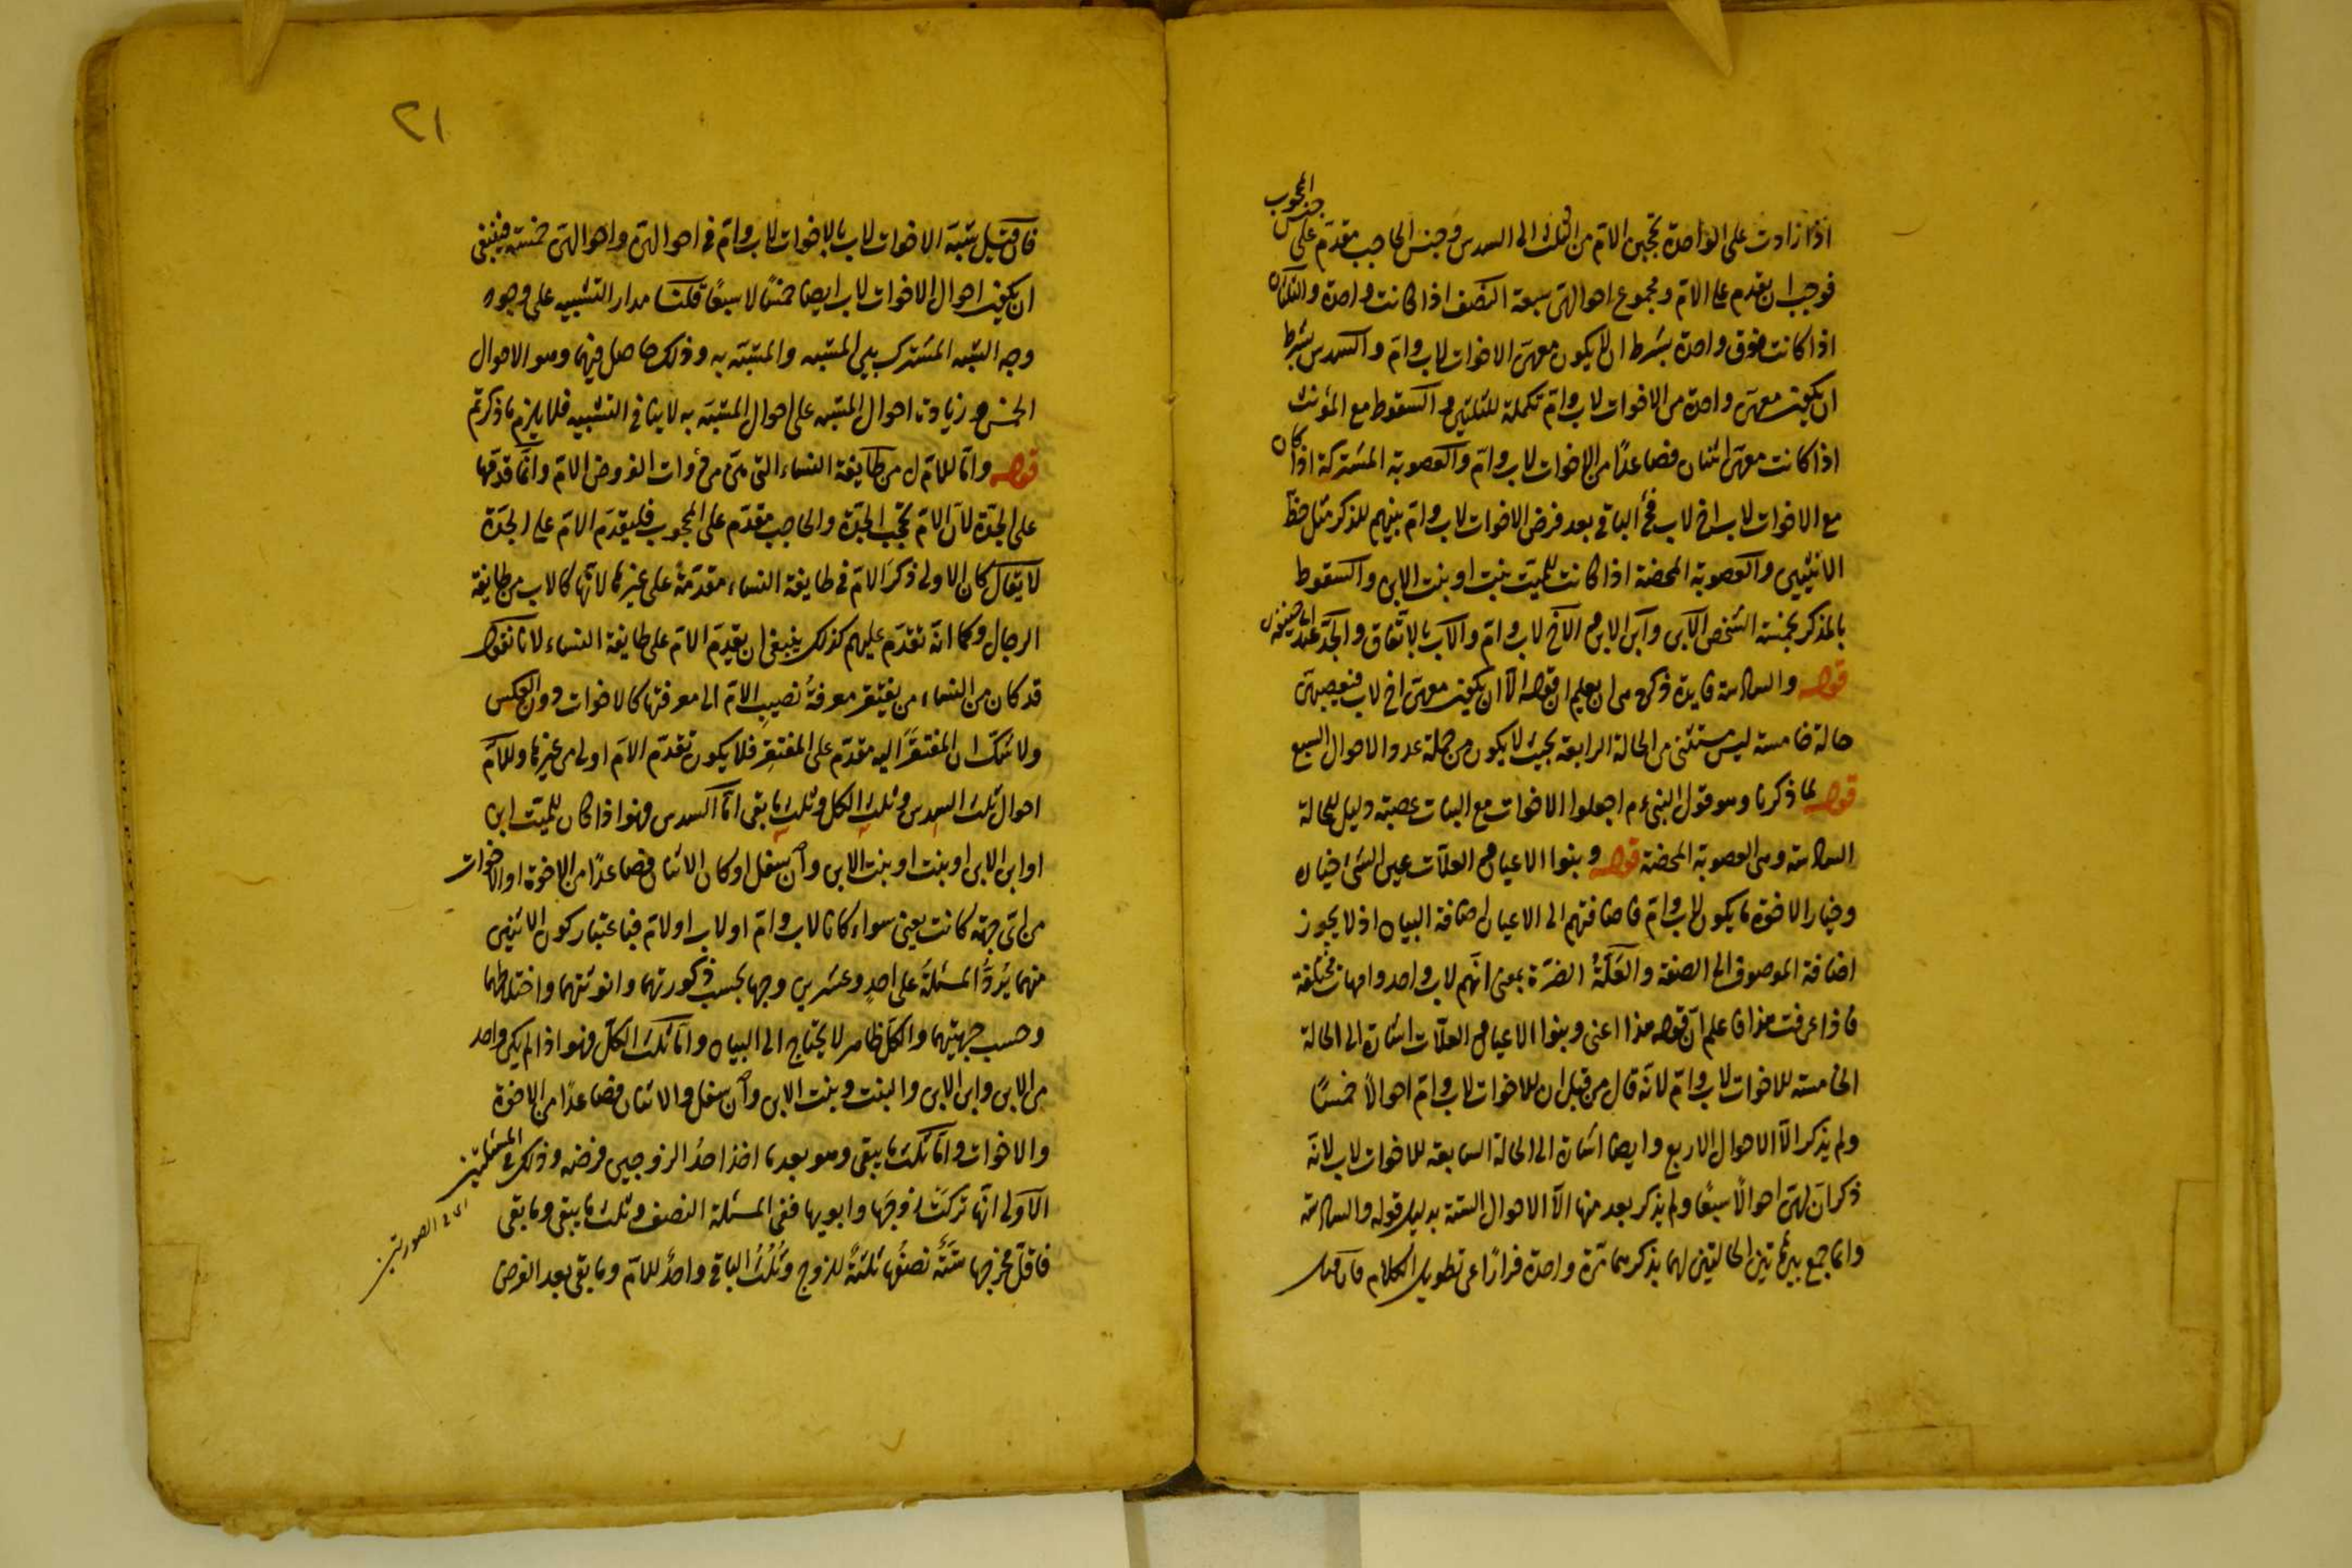 اذا زادت على الواحدة تحجبن الام من الثلث الى السدس وجنس الحاجب مقدم على جنس المحجوب
فوجب ان يقدم على الام ومجموع احوالهن سبعة النصف اذا كانت واحدة والثلثان
اذا كانت فوق واحدة بشرط ان لا يكون معهن الاخوات لاب وام والسدس بشرط
ان يكون معهن واحدة من الاخوات لاب وام تكملة للثلثين والسقوط مع المؤنث
اذا كانت معهن اثنتان فصاعدًا من الاخوات لاب وام والعصوبة المشتركة اذا كان
مع الاخوات لاب اخ لاب فخ الباقى بعد فرض الاخوات لاب وام بينهم للذكر مثل حظ
الانثيين والعصوبة المحضة اذا كانت للميت بنت او بنت الابن والسقوط
بالمذكر بخمسة اشخص الابن وابن الابن والاخ لاب وام والاب بالاتفاق والجد عند ابى حنيفة
قوله والسادسة فايدة ذكره من ان يعلم ان قوله الا ان يكون معهن اخ لاب فيعصبهن
حالة خامسة ليس مستثنى من الحالة الرابعة بحيث لا يكون من جملة عدد الاحوال السبع
قوله لما ذكرنا وهو قول النبى ءم اجعلوا الاخوات مع البنات عصبة دليل للحالة
السادسة وهى العصوبة المحضة قوله وبنوا الاعيان والعلات عين الشئ خياره
وخيار الاخوة ما يكون لاب وام فاضافتهم الى الاعيان اضافة البيان اذ لا يجوز
اضافة الموصوف الى الصفة والعَلَّةُ الضرة بمعنى انهم لاب واحد وامهات مختلفة
فاذا عرفت هذا فاعلم ان قوله هذا اعنى وبنوا الاعيان والعلات اشارة الى الحالة
الخامسة للاخوات لاب وام لانه قال من قبل ان للاخوات لاب وام احوالًا خمسًا
ولم يذكر الا الاحوال الاربع وايضا اشارة الى الحالة السابعة للاخوات لاب لانه
ذكر ان لهن احوالًا سبعًا ولم يذكر بعد منها الا الاحوال الستة بدليل قوله والسادسة
وانما جمع بين هاتين الحالتين لهما بذكرهما مرة واحدة فرارًا عن تطويل الكلام فان قيل
٢١
فان قيل شبه الاخوات لاب بالاخوات لاب وام فى احوالهن واحوالهن خمسة فينبغى
ان يكون احوال الاخوات لاب ايضا خمسًا لا سبعًا قلنا مدار التشبيه على وجود
وجه الشبه المشترك بين المشبه والمشبه به وذلك حاصل فيهما وهو الاحوال
الخمس وزيادة احوال المشبه على احوال المشبه به لا ينافى التشبيه فلا يلزم ما ذكرتم
قوله واما للام ل من طايفة النساء التى هى من ذوات الفروض الام وانما قدمها
على الجدة لان الام تحجب الجدة والحاجب مقدم على المحجوب فليقدم الام على الجدة
لا يقال كان الاولى ذكر الام فى طايفة النساء مقدمة على غيرها لانها كالاب من طايفة
الرجال وكما انه تقدم عليهم كذلك ينبغى ان يقدم الام على طايفة النساء لانا نقول
قد كان من النساء من يفتقر معرفة نصيب الام الى معرفتها كالاخوات دون العكس
ولا شك ان المفتقر اليه مقدم على المفتقر فلا يكون تقدم الام اولى من غيرها وللام
احوال ثلث السدس وثلث الكل وثلث ما بقى اما السدس فهو اذا كان للميت ابن
او ابن الابن او بنت او بنت الابن وان سفل او كان الاثنان فصاعدًا من الاخوة او الاخوات
من اى جهة كانت يعنى سواء كانا لاب وام او لاب او لام فباعتبار كون الاثنين
منهما يُرَدُّ المسئلة على احد وعشرين وجها بحسب ذكورتهما وانوثتهما واختلاطهما
وحسب جهتيهما والكل ظاهر لا يحتاج الى البيان واما ثلث الكل فهو اذا لم يكن واحد
من الابن وابن الابن والبنت وبنت الابن وان سفل والاثنان فصاعدًا من الاخوة
والاخوات واما ثلث ما يبقى وهو بعد ما اخذ احدُ الزوجين فرضه وذلك فى المسئلتين
اى فى الصورتين
الاولى انها تركت زوجها وابويها ففى المسئلة النصف وثلث ما يبقى وما بقى
فاقل مخرجها ستَّة نصفُها ثلثةٌ للزوج وثُلُثُ الباقى واحدٌ للام وما بقى بعد الفرض